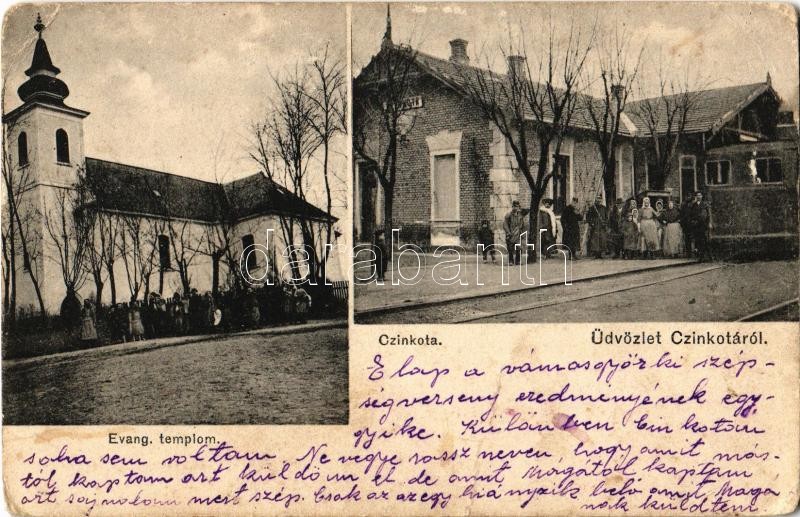 darabanth
Czinkota.
Üdvözlet Czinkotáról.
Evang. templom.
E lap a vámosgyörki szép-
ségverseny eredményének egy-
gyike. Különben Cinkotán
soha sem voltam. Ne vegye rossz néven, hogy amit más-
tól kaptam azt küldöm el de amit Magától kaptam
azt sajnálom mert szép. Csak az az egy hiányzik belő amit Magá
nak küldtem.